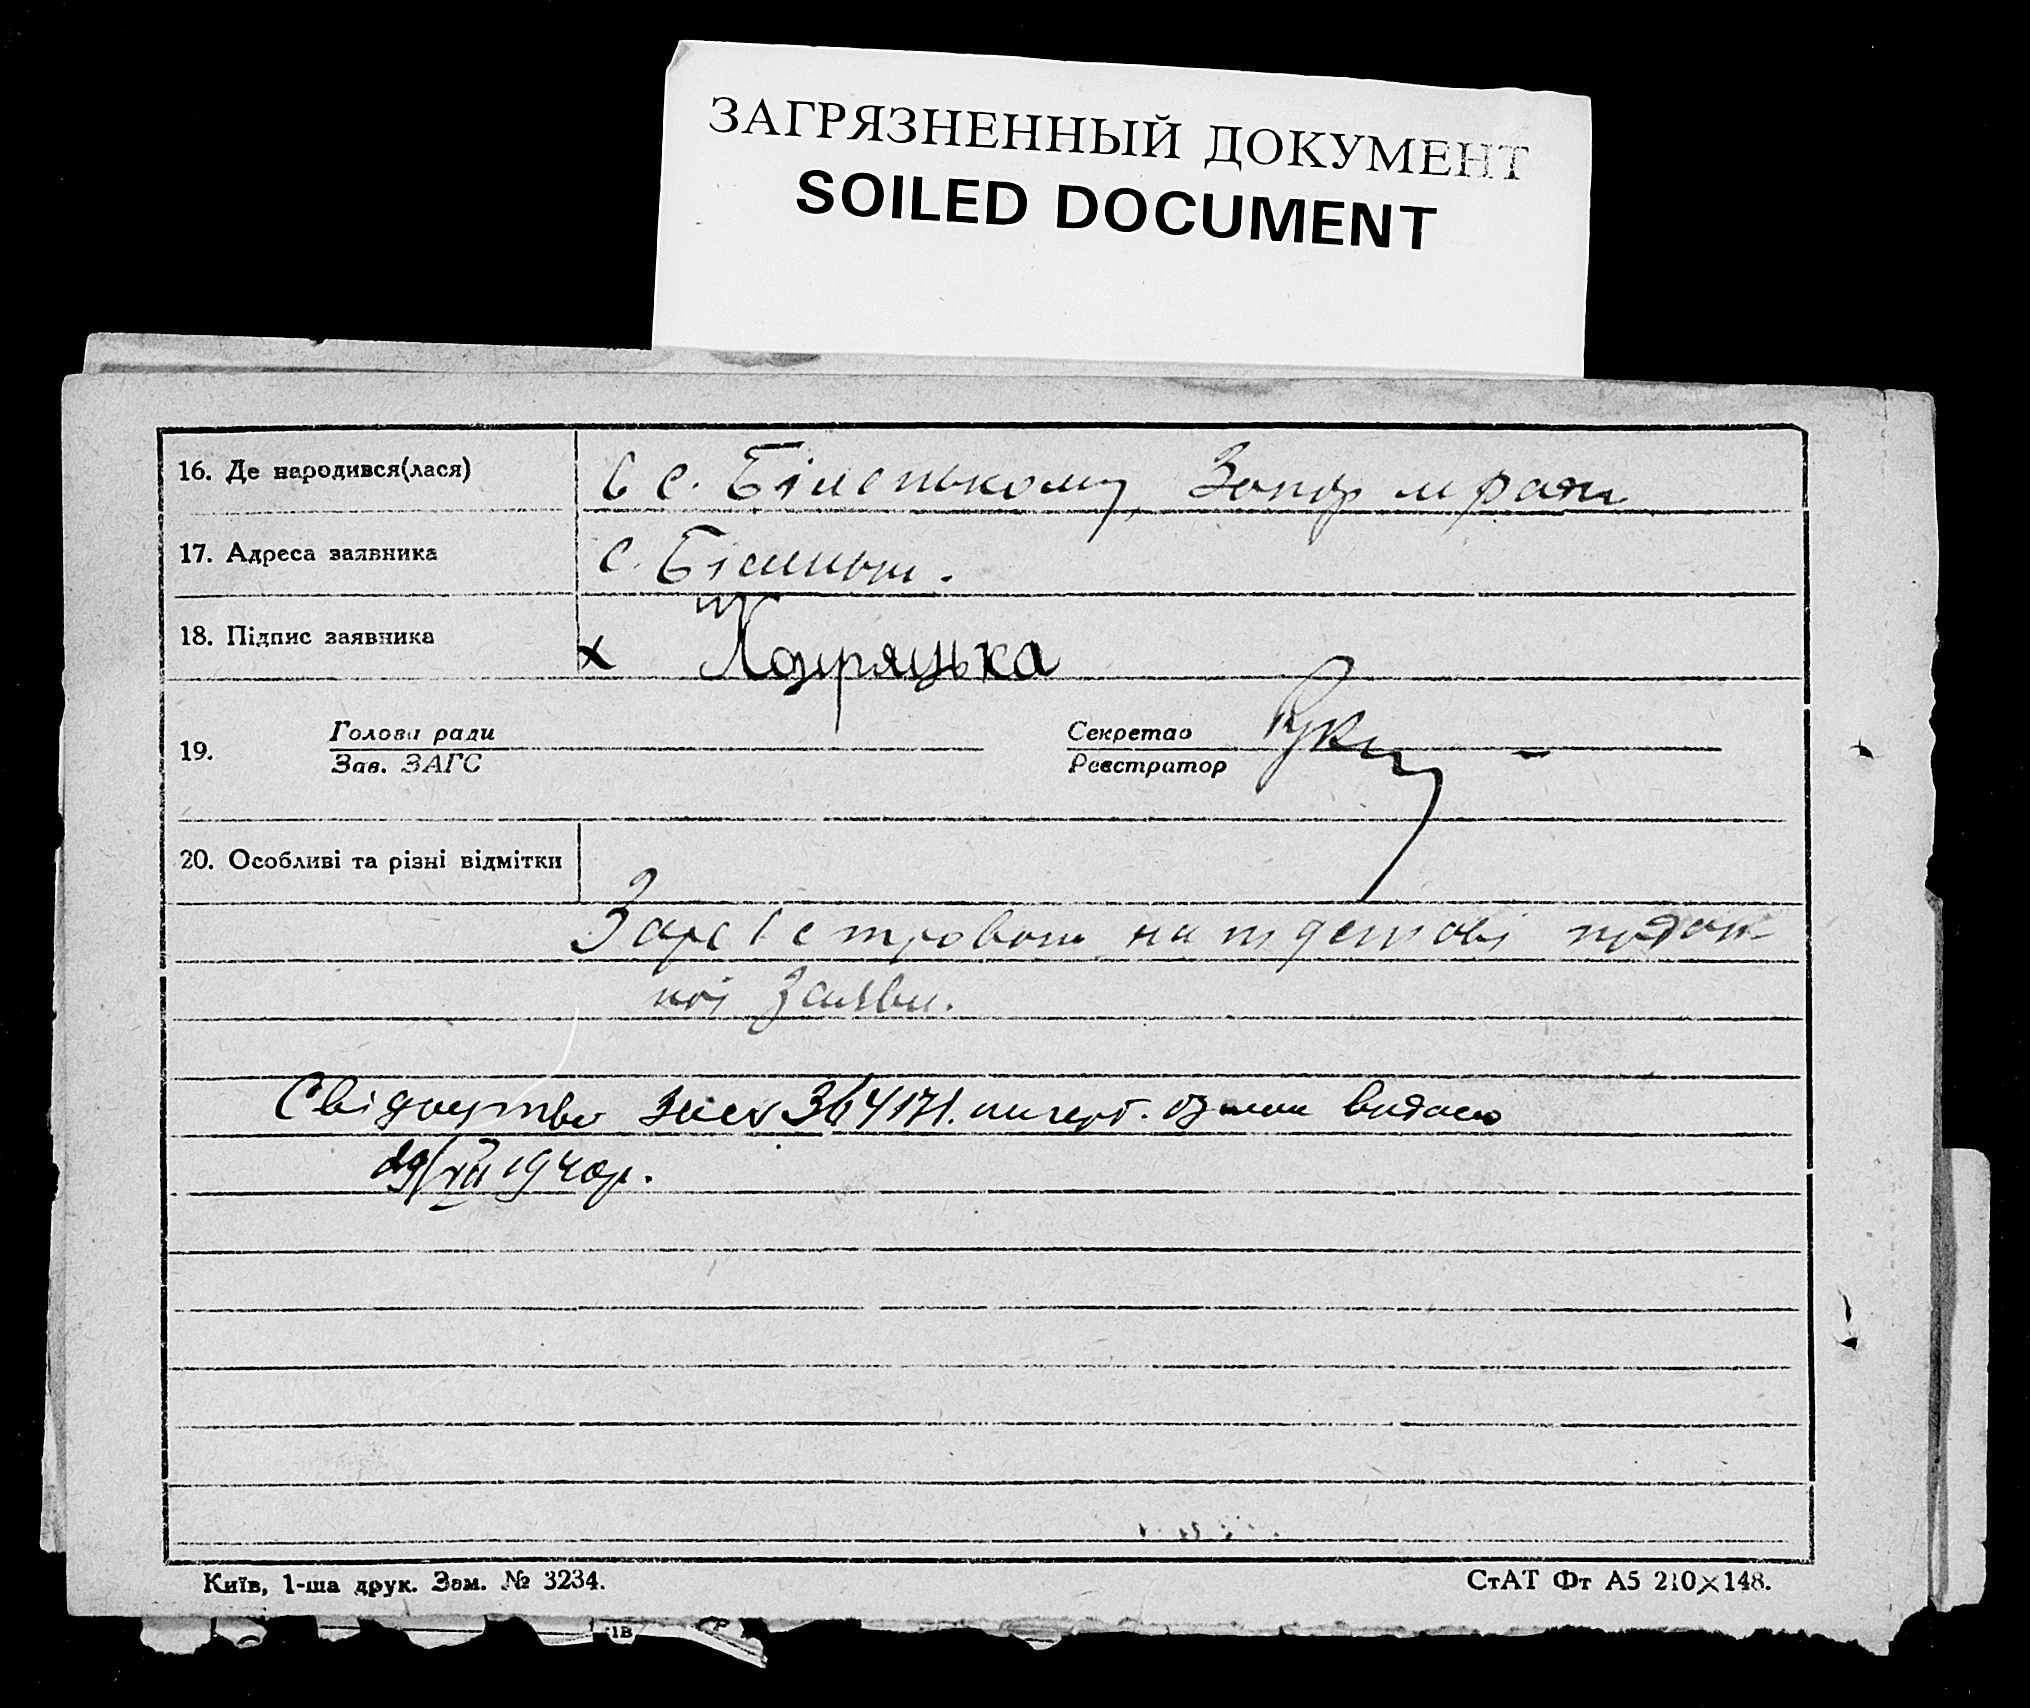 ЗАГРЯЗНЕННЫЙ ДОКУМЕНТ
SOILED DOCUMENT
16. Де народився(лася)
в с. Біленькому, Запор м ради
17. Адреса заявника
с. Біленьке.
18. Підпис заявника
х
19.
Голова ради
Зав. ЗАГС
Секретар
Реєстратор
20. Особливі та різні відмітки
Зареєстровано на підставі подан-
ної заяви.
Свідоцтво за № 364171. видано
29/VII 1940р.
Київ, 1-ша друк. Зам. № 3234.
СтАТ Фт А5 210×148.